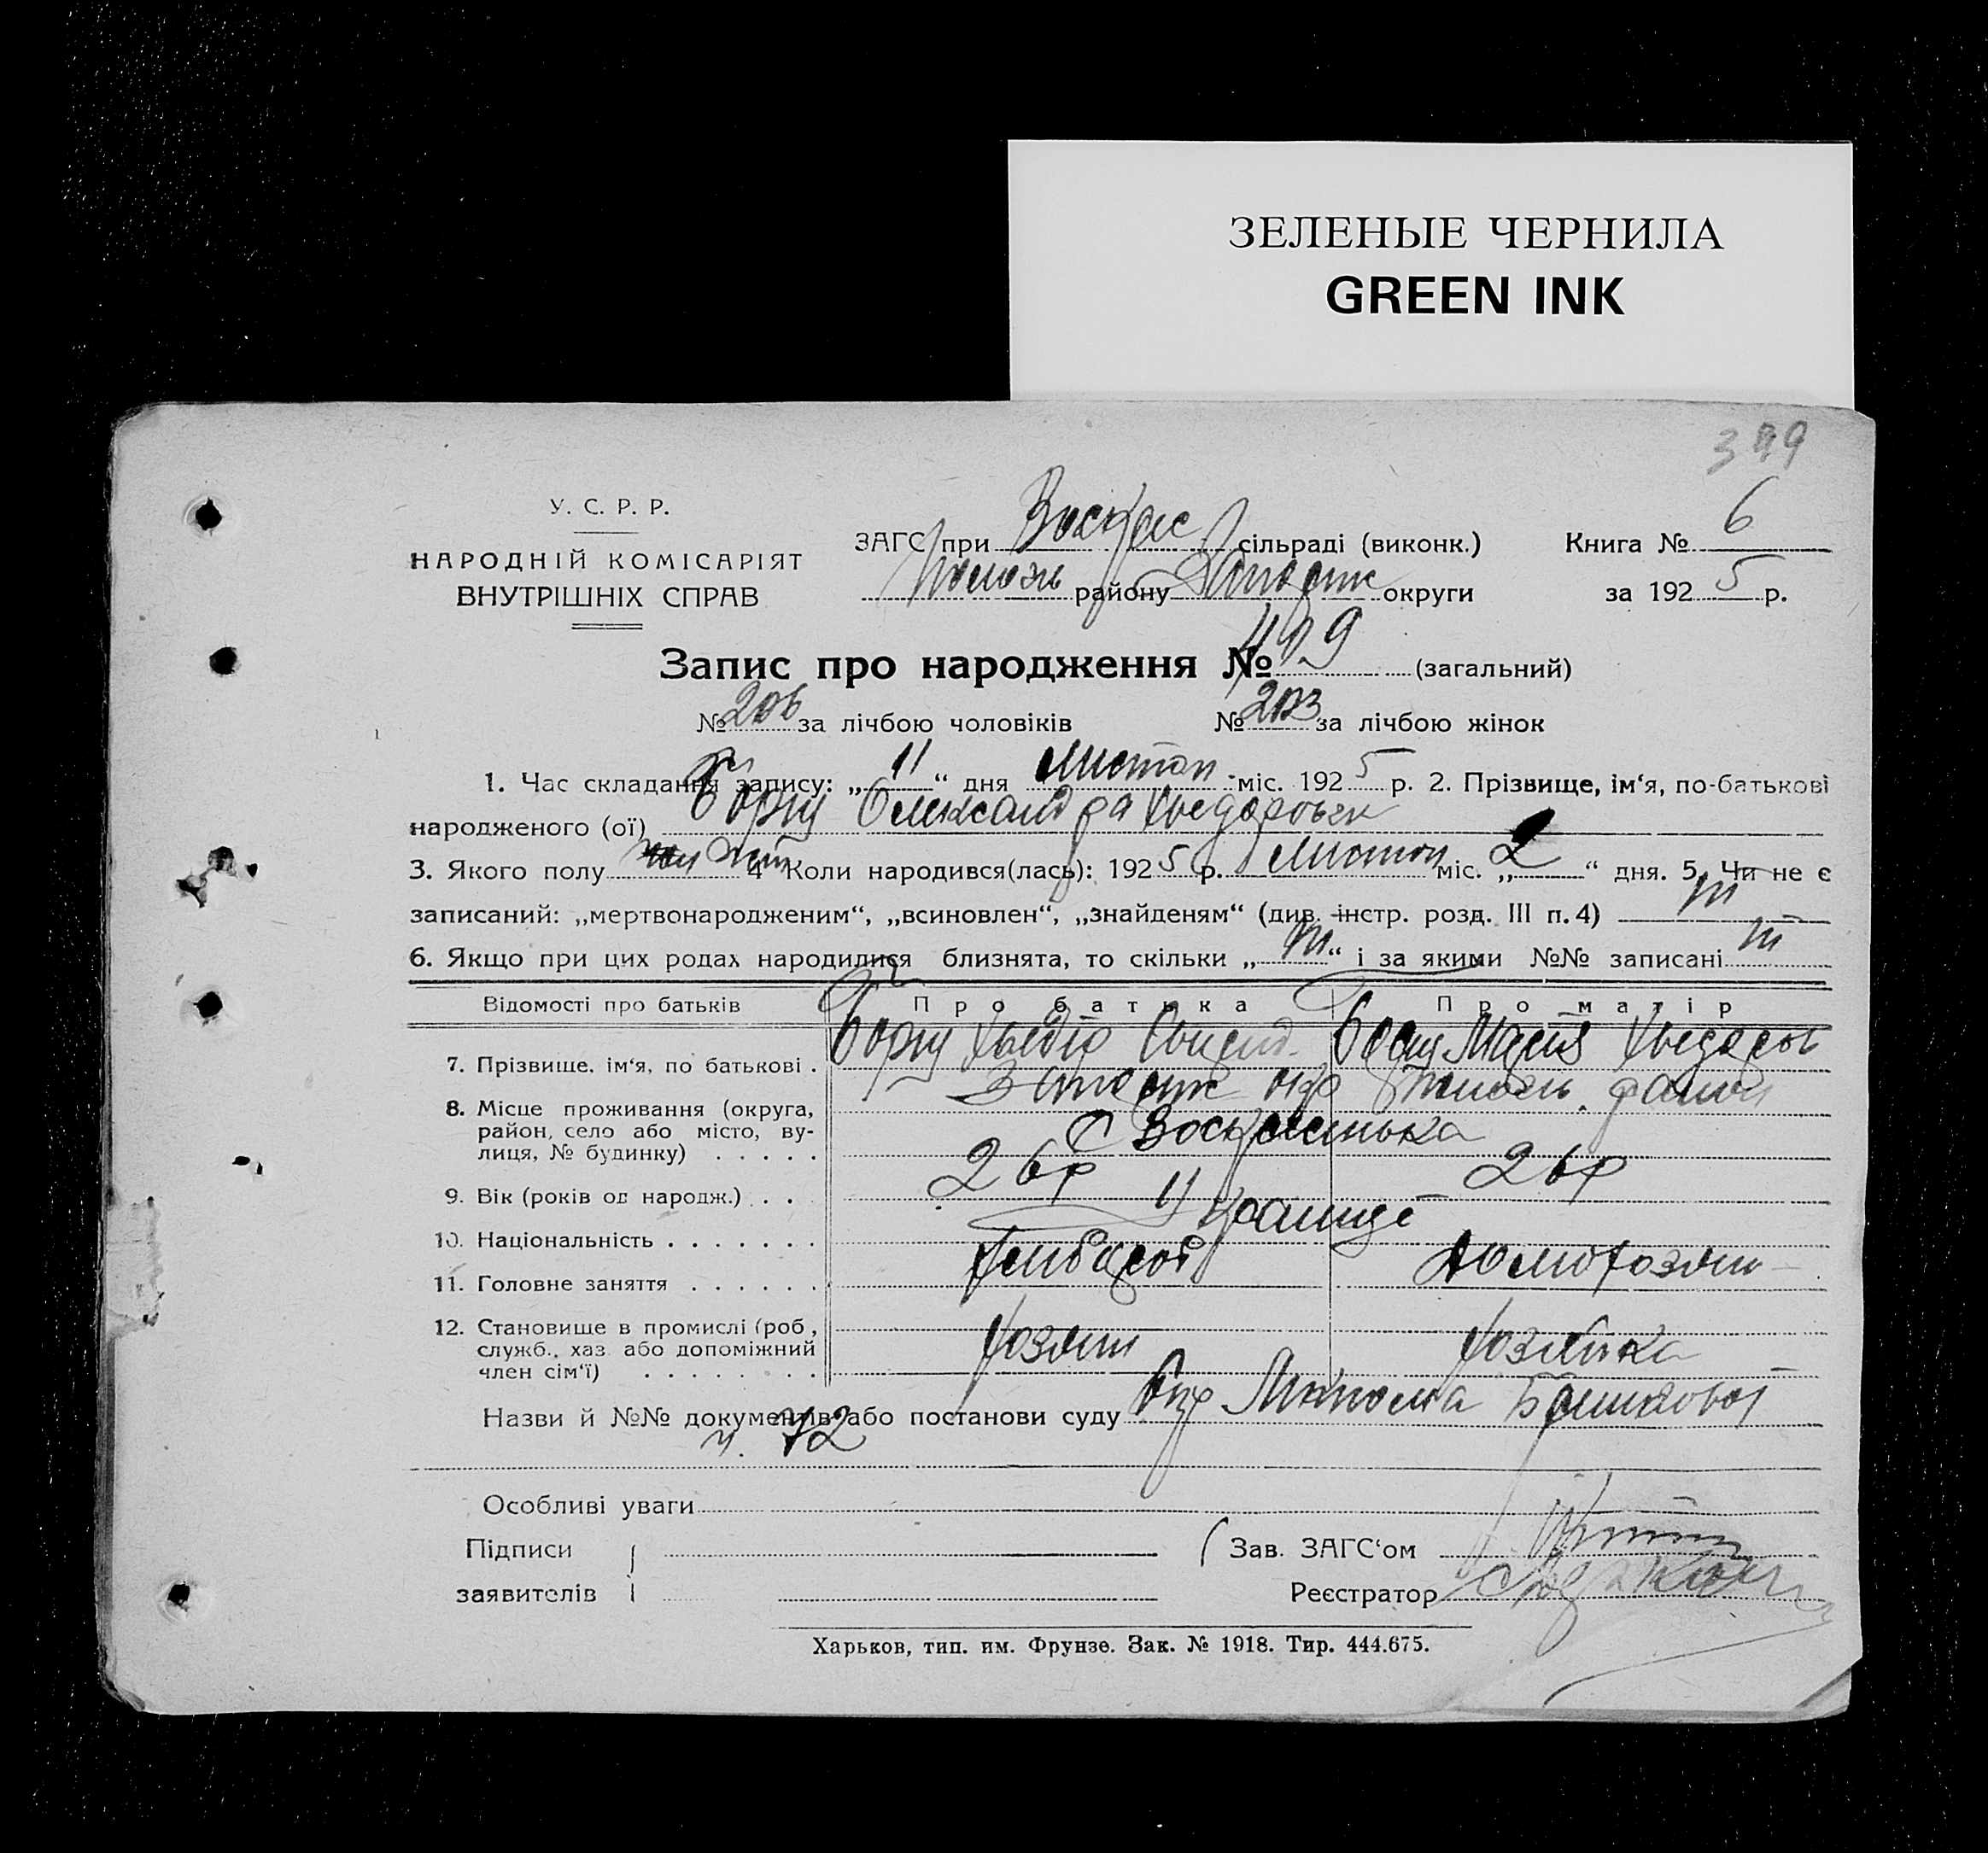 ЗЕЛЕНЫЕ ЧЕРНИЛА
GREEN INK
У. С. Р. Р.
НАРОДНІЙ КОМІСАРІЯТ
ВНУТРІШНІХ СПРАВ
ЗАГС при Воскрес сільраді (виконк.)
району Запоріж округи
Книга № 6
за 1925 р.
Запис про народження № 409 (загальний)
№ 206 за лічбою чоловіків № 203 за лічбою жінок
1. Час складання запису: „11“ дня Листоп міс. 1925 р. 2. Прізвище, ім‘я, по-батькові
народженого (ої) Олександра Хведоровен
3. Якого полу жін 4 Коли народився(лась): 1925 р. Листоп міс. „2“ дня. 5. Чи не є
записаний: „мертвонародженим“, „всиновлен“, „знайденям“ (див. інстр. розд. III п. 4) ні
6. Якщо при цих родах народилися близнята, то скільки „ні“ і за якими №№ записані ні
Відомості про батьків Про батька Про матір
7. Прізвище, ім‘я, по батькові . Хведір Марія Хведоров
8. Місце проживання (округа, Запоріж окр район
район, село або місто, ву- С Воскресенька
лиця, № будинку) . . . . .
9. Вік (років од народж.) . . 26р 26р
10. Національність . . . . . . . Українці
11. Головне заняття . . . . . . Хлібороб Домохозяй
12. Становище в промислі (роб., Хозяин Хозяйка
служб., хаз. або допоміжний
член сім‘ї) . . . . . . . .
Назви й №№ документів або постанови суду
ч. 72
Особливі уваги
Підписи
заявителів
Зав. ЗАГС‘ом
Реєстратор
Харьков, тип. им. Фрунзе. Зак. № 1918. Тир. 444.675.